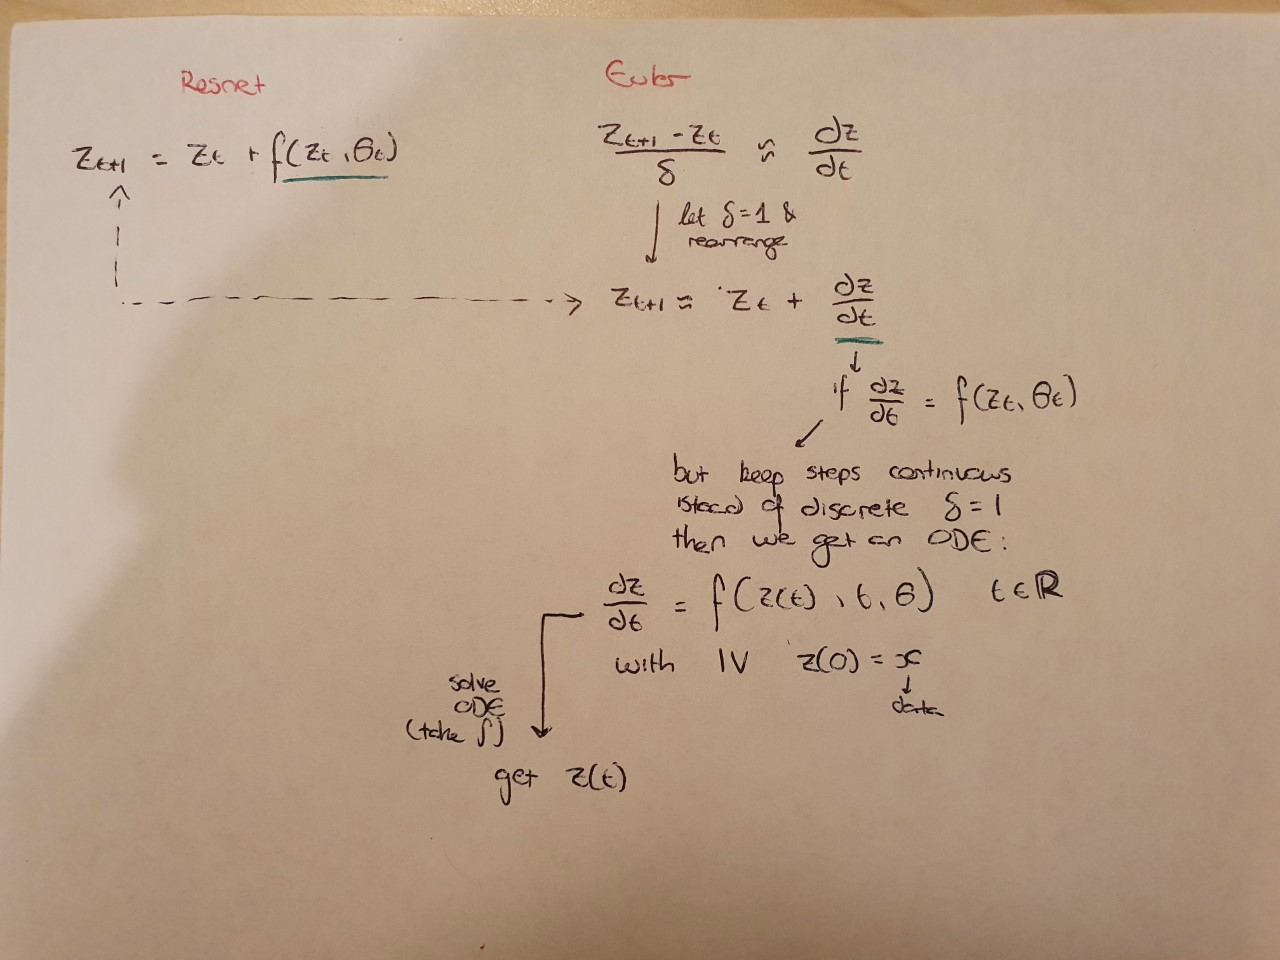 Resnet
Euler
z_{t+1} = z_t + f(z_t, θ_t)
\frac{z_{t+1} - z_t}{δ} ≈ \frac{dz}{dt}
let δ=1 &
rearrange
z_{t+1} ≈ z_t + \frac{dz}{dt}
if \frac{dz}{dt} = f(z_t, θ_t)
but keep steps continuous
istead of discrete δ=1
then we get an ODE:
\frac{dz}{dt} = f(z(t), t, θ) t ∈ ℝ
with IV z(0) = x
data
solve
ODE
(take ∫)
get z(t)